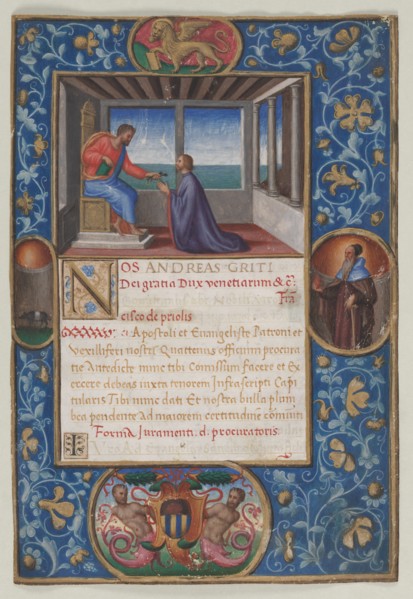 NOS ANDREAS GRITI
Dei gratia Dux venetiarum & c̃:
Frã
cisco de priolis
ci Apostoli et Evangeliste Patroni et
Vexilliferi nostri Quattenus officium procura
tie Antedicte nunc tibi Comissum Facere et Ex
ercere debeas iuxta tenorem Infrascripti Capi
tularis Tibi nunc dati Et nostra bulla plum
bea pendente Ad maiorem certitudinē cōmuniti
Forma Iuramenti . d. procuratoris
I